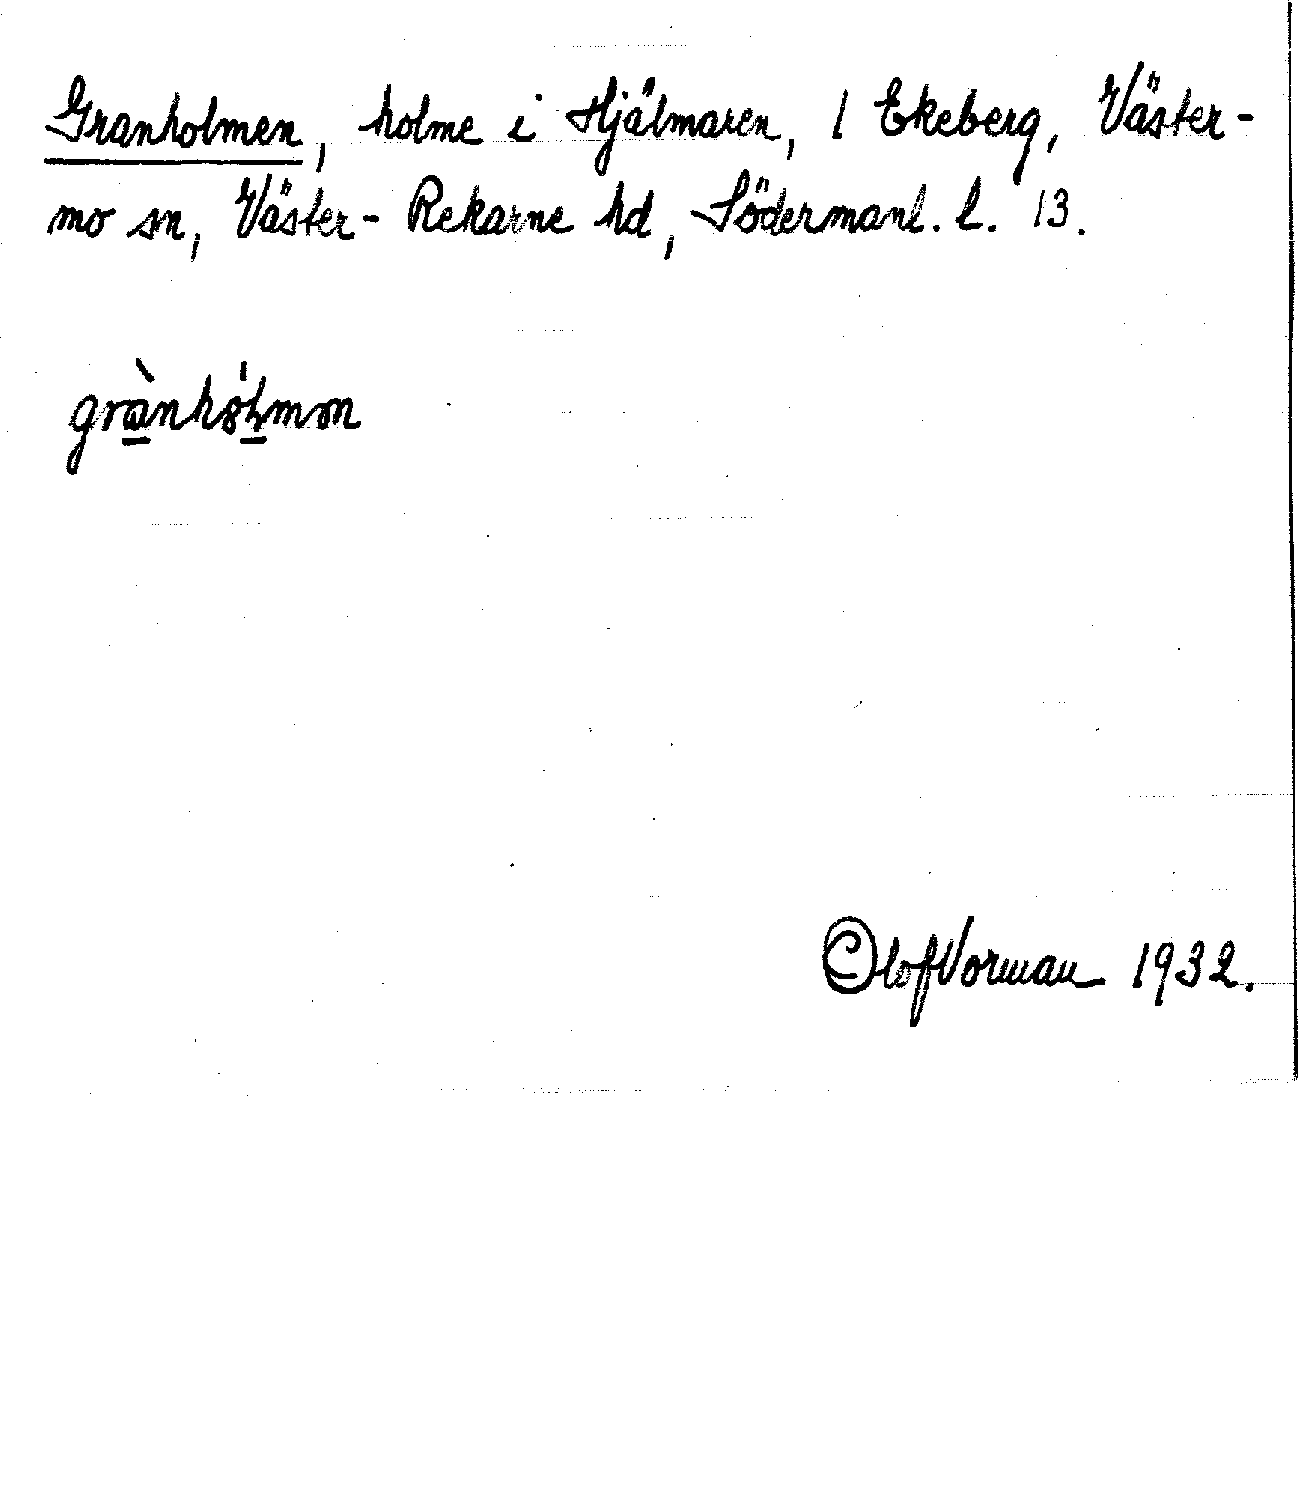 Granholmen, holme i Hjälmaren, / Ekeberg, Väster-
mo sn, Väster-Rekarne hd, Södermanl. l. 13.
Olof Vorman 1932.